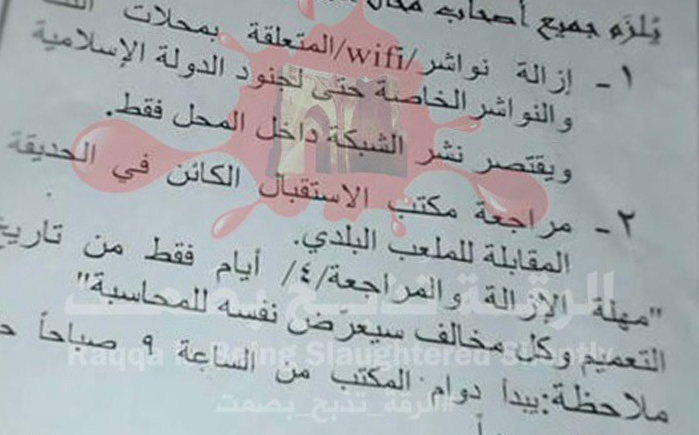 يُلزم جميع أصحاب محال
١- إزالة نواشر/wifi/المتعلقة بمحلات
والنواشر الخاصة حتى لجنود الدولة الإسلامية
ويقتصر نشر الشبكة داخل المحل فقط.
٢- مراجعة مكتب الاستقبال الكائن في الحديقة
المقابلة للملعب البلدي.
"مهلة الإزالة والمراجعة/٤/ أيام فقط من تاريخ
التعميم وكل مخالف سيعرّض نفسه للمحاسبة"
ملاحظة:يبدأ دوام المكتب من الساعة ٩ صباحاً
الرقة تذبح بصمت
Raqqa is Being Slaughtered Silently
#الرقة_تذبح_بصمت